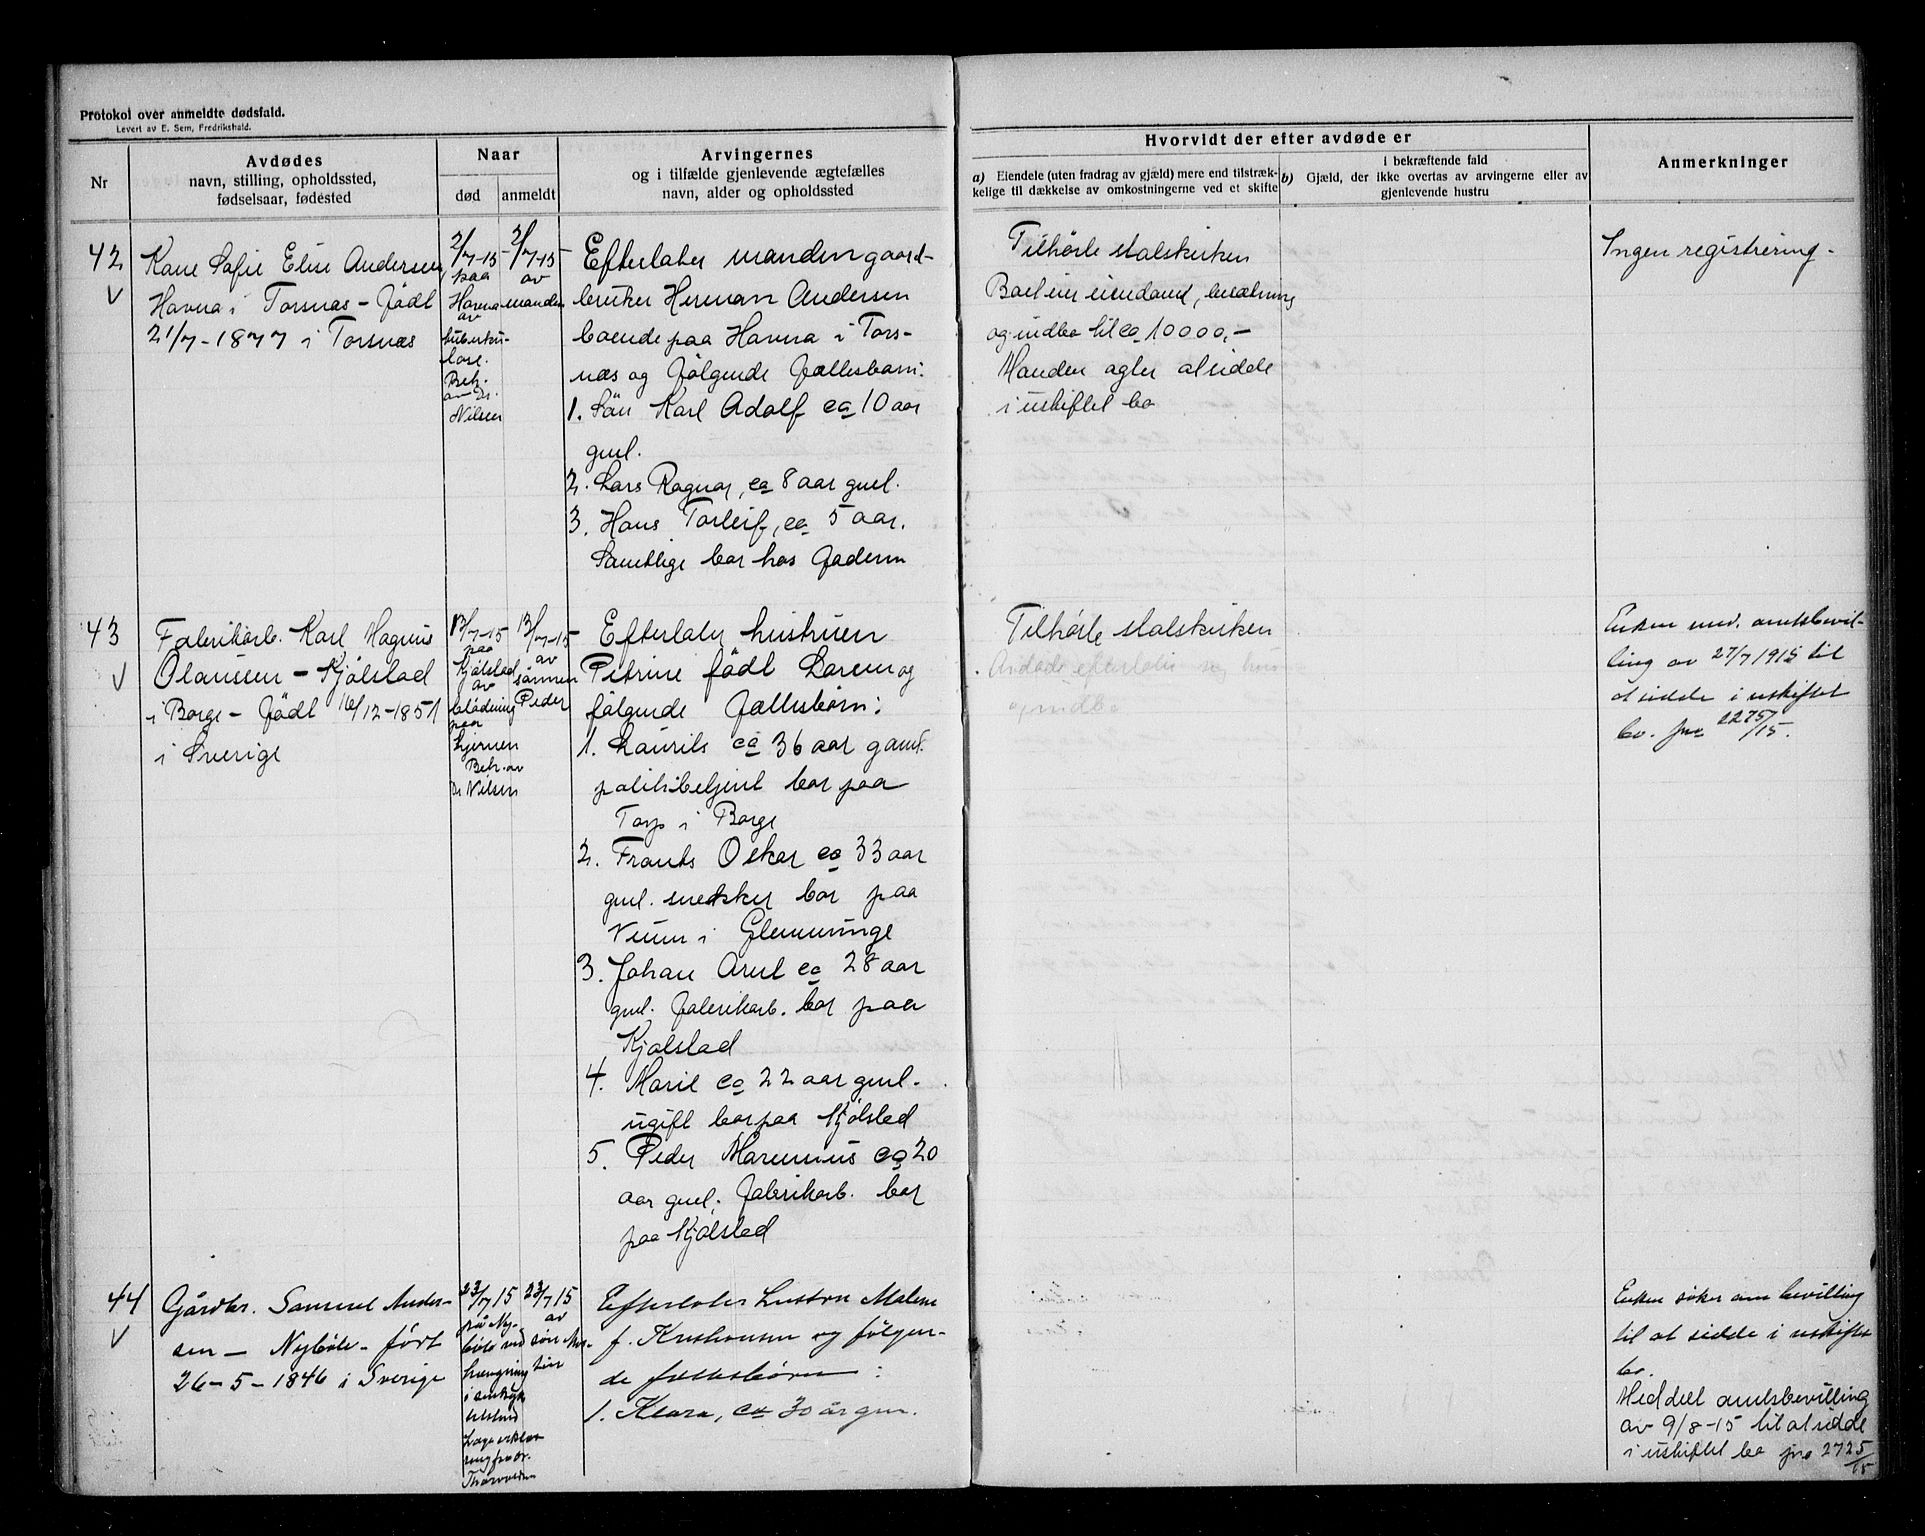 Protokol over anmeldte dødsfald.
Levert av E. Sem, Fredrikshald.
Nr
Avdødes
navn, stilling, opholdssted,
fødselsaar, fødested
Naar
død
anmeldt
Arvingernes
og i tilfælde gjenlevende ægtefælles
navn, alder og opholdssted
Hvorvidt der efter avdøde er
a) Eiendele (uten fradrag av gjæld) mere end tilstræk-
kelige til dækkelse av omkostningerne ved et skifte
i bekræftende fald
b) Gjæld, der ikke overtas av arvingerne eller av
gjenlevende hustru
Anmerkninger
42
Kone Sofie Elise Andersen
Havna i Torsnæs - født
21/7-1877 i Torsnæs
2/7-15
paa
Havna
av
tuberku-
lose.
Beh.
av Dr.
Nilsen
2/7-15
av
manden
Efterlater manden gaard-
bruker Herman Andersen
boende paa Havna i Tors-
næs og følgende fællesbarn:
1. Søn Karl Adolf ca 10 aar
gml.
2. Lars Ragnar, ca 8 aar gml.
3. Hans Torleif, ca 5 aar.
Samtlige bor hos faderen
Tilhørte statskirken
Boet eier eiendand, besætning
og indbo til ca 10000,-
Manden agter at sidde
i uskiftet bo
Ingen registrering -
43
Fabrikarb. Karl Magnus
Olaussen - Kjølstad
i Borge - født 16/12-1851
i Sverige
13/7-15
paa
Kjølstad
av
blødning
paa
hjernen
Beh. av
Dr Nilsen
13/7-15
av
sønnen
Peder
Efterlater hustruen
Petrine født Lorens og
følgende fællesbørn:
1. Laurits ca 36 aar gaml.
politibetjent bor paa
Torp i Borge
2. Frants Oskar ca 33 aar
gml. snedker bor paa
Veum i Glemminge
3. Johan Arnt ca 28 aar
gml. fabrikarb. bor paa
Kjølstad
4. Marie ca 22 aar gml.
ugift bor paa Kjølstad
5. Peder Marenius ca 20
aar gml. fabrikarb. bor
paa Kjølstad
Tilhørte statskirken
Avdøde efterlater sig hus
og indbo
Enken med. amtsbevil-
ling av 27/7 1915 til
at sidde i uskiftet
bo. jno 2275/15.
44
Gårdbr. Samuel Ander-
sen - Nybøle - født
26-5-1846 i Sverige
23/7 15
på Ny-
bøle ved
hængning
i sindsyk
tilstand
Lægeerklæ-
ring fra dr.
Thorvaldsen
23/7 15
av
søn Mar-
tin
Efterlater hustru Malene
f. Kristiansen og følgen-
de fællesbørn:
1. Klara, ca 30 år gm.
Enken søker om bevilling
til at sidde i uskiftet
bo.
Meddelt amtsbevilling
av 9/8-15 til at sidde
i uskiftet bo jno 2725/15